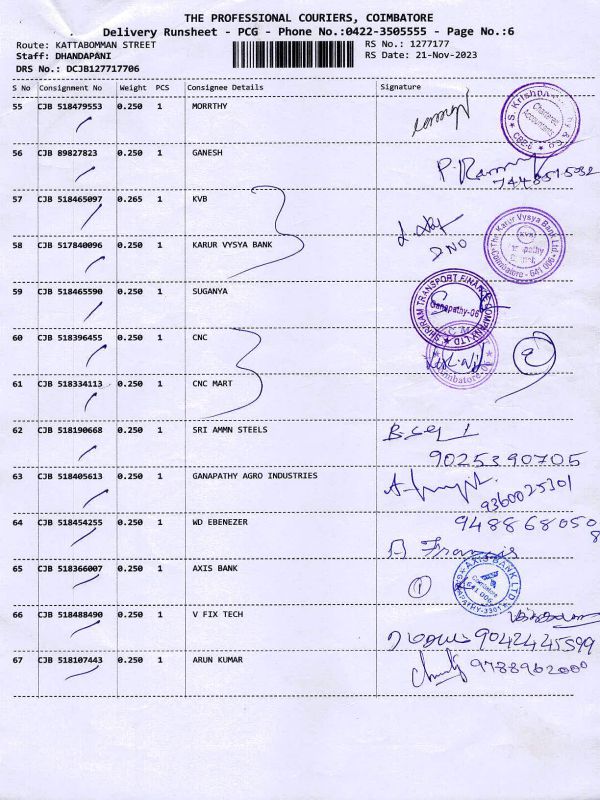 THE PROFESSIONAL COURIERS, COIMBATORE
Delivery Runsheet - PCG - Phone No.:0422-3505555 - Page No.:6
Route: KATTABOMMAN STREET RS No.: 1277177
Staff: DHANDAPANI RS Date: 21-Nov-2023
DRS No.: DCJB127717706
S No Consignment No Weight PCS Consignee Details Signature
55 CJB 518479553 0.250 1 MORRTHY
56 CJB 89827823 0.250 1 GANESH
57 CJB 518465097 0.265 1 KVB
58 CJB 517840096 0.250 1 KARUR VYSYA BANK
The Karur Vysya Bank Ltd
Coimbatore - 641 006
59 CJB 518465590 0.250 1 SUGANYA
SHRIRAM TRANSPORT FINANCE COMPANY LTD
Ganapathy-06
60 CJB 518396455 0.250 1 CNC
61 CJB 518334113 0.250 1 CNC MART
2
62 CJB 518190668 0.250 1 SRI AMMN STEELS
9025390705
63 CJB 518405613 0.250 1 GANAPATHY AGRO INDUSTRIES
9360025301
64 CJB 518454255 0.250 1 WD EBENEZER
9488680508
A Francis
65 CJB 518366007 0.250 1 AXIS BANK
1 AXIS BANK LTD
Coimbatore
641 006
66 CJB 518488490 0.250 1 V FIX TECH
9042445599
67 CJB 518107443 0.250 1 ARUN KUMAR
9788962000